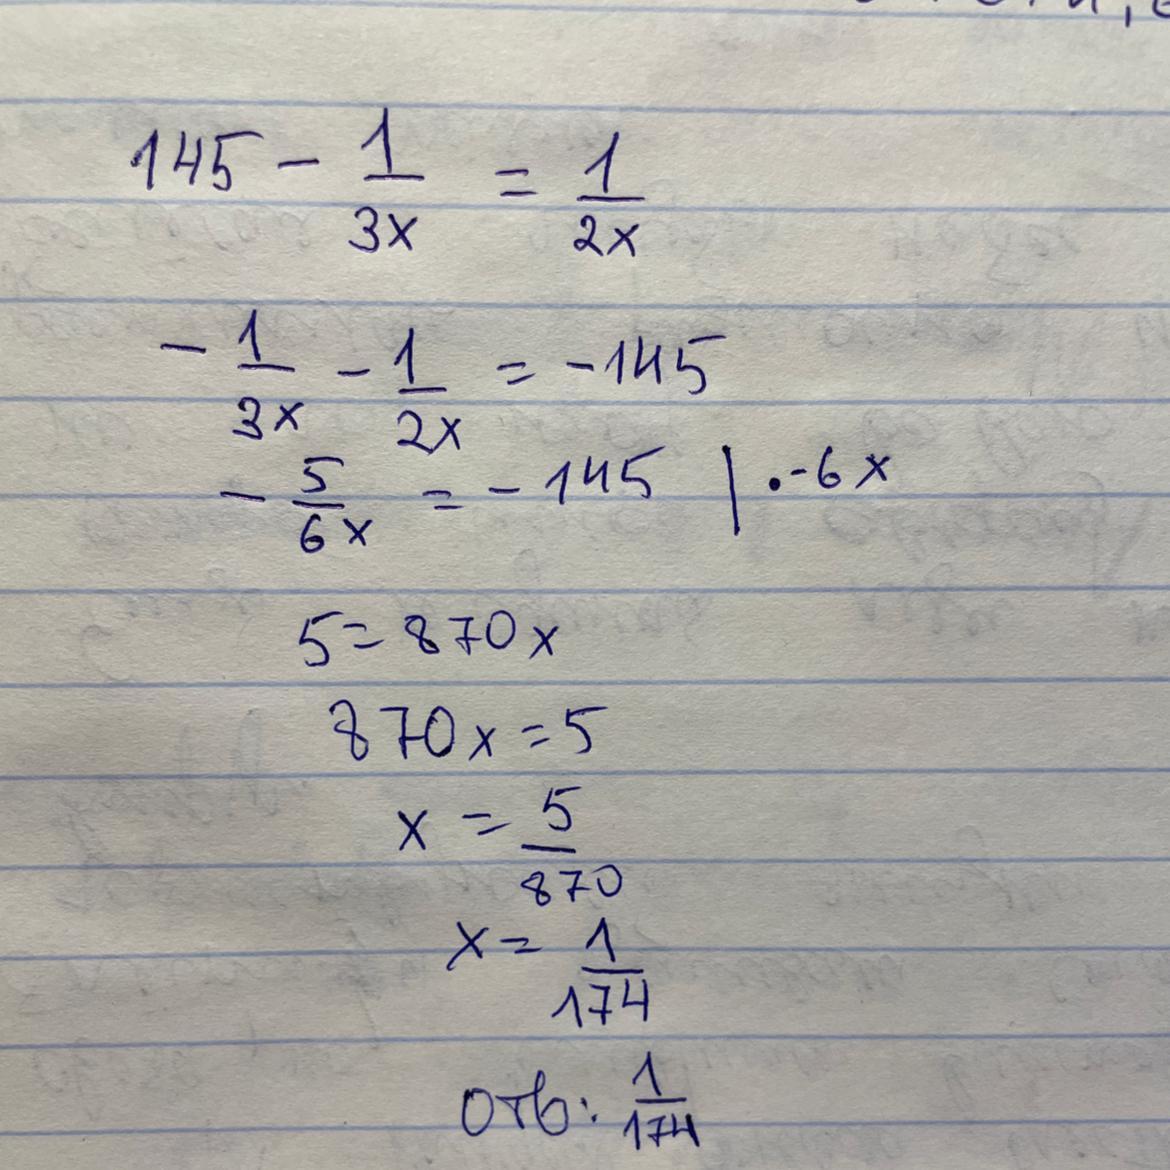 145 - 1/3x = 1/2x
- 1/3x - 1/2x = -145
- 5/6x = - 145 | · -6x
5 = 870x
870x = 5
x = 5/870
x = 1/174
Отв: 1/174